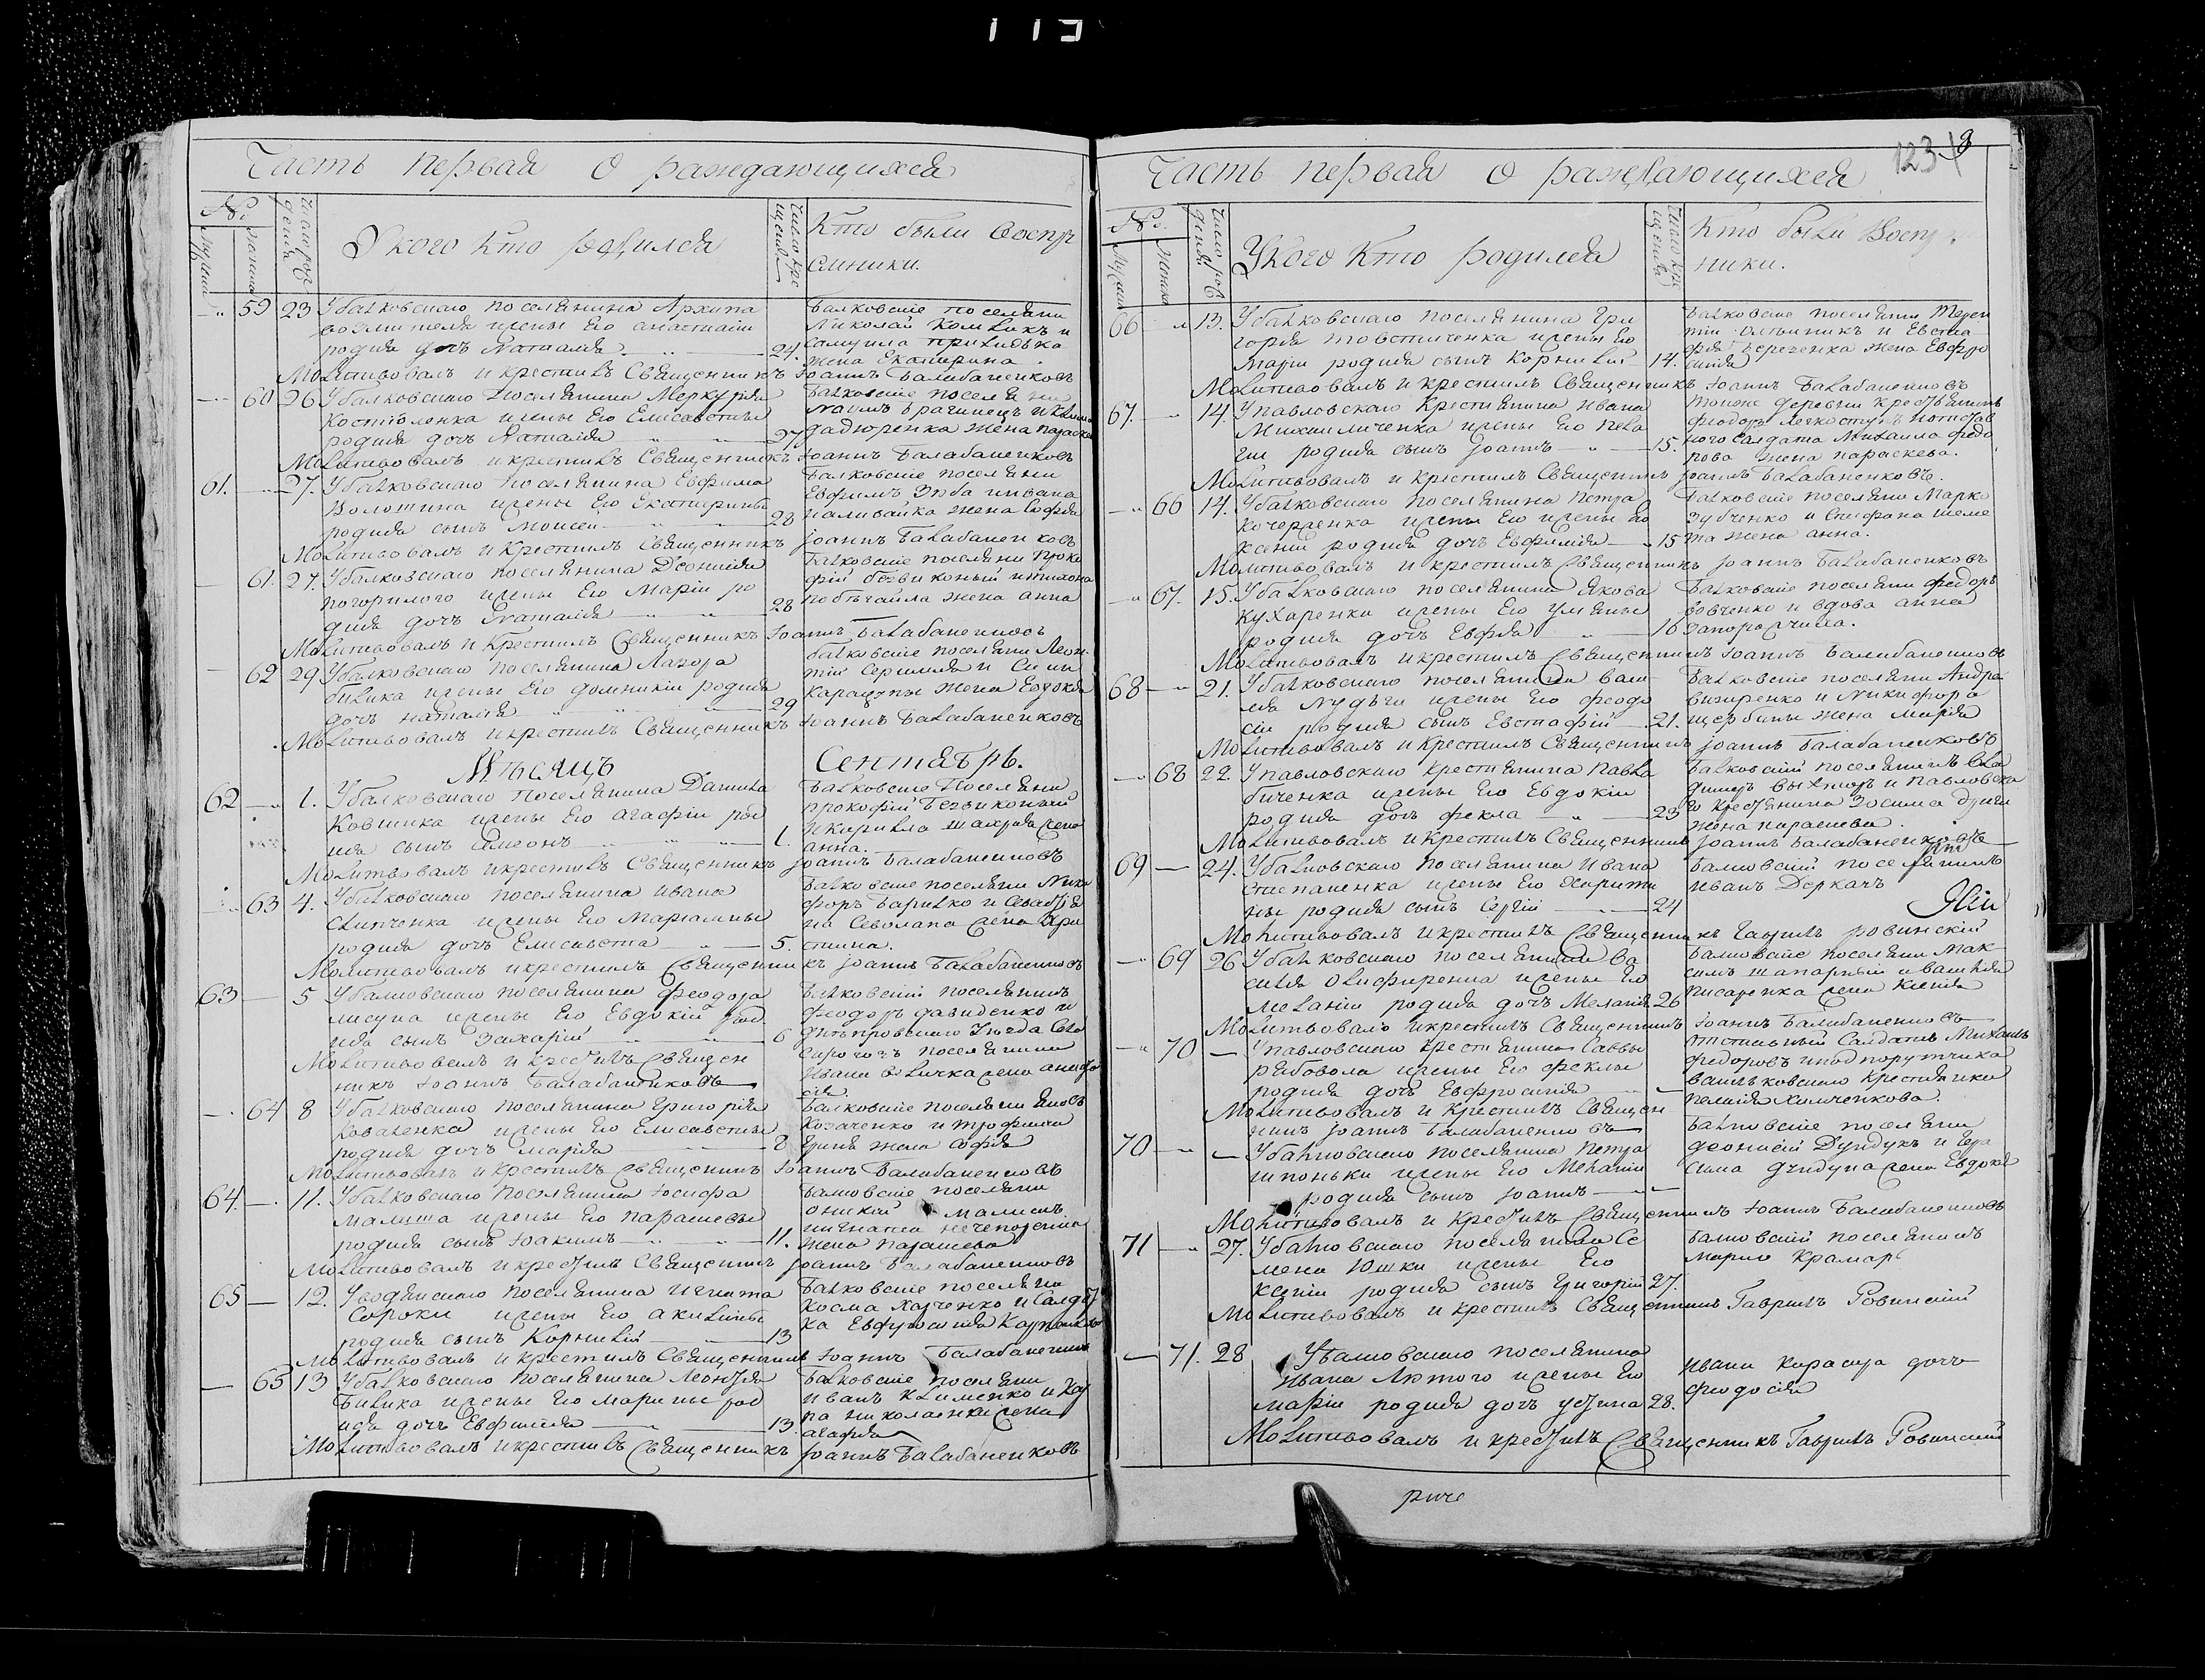 113
Часть первая о раждающихся
№
Мужеска
Женска
Число рож
денія
У кого кто родился
Число кре
щенія
Кто были воспр
емники.
59 23 У балковскаго поселянина Архипа
жены его анастасіи
родися дочь Наталія 24.
Балковские поселяни
Николай и
жена Екатерина.
Молитвовалъ и крестилъ Священникъ Іоаннъ Балабаненковъ
60 26 У балковскаго Поселянина Меркурія
Костюленка и жены Его Елисаветы
родися дочь Наталія 27.
Балковские поселяни
Наумъ Брагинецъ и
жена параске
Молитвовалъ и крестилъ Священникъ Іоаннъ Балабаненковъ
61. 27. У балковскаго Поселянина Евфима
Волошина и жены Его Екатерины
родися сынъ Моисей 28
Балковские поселяни
Евфимъ Зюба и ивана
наливайка жена Софія
Молитвовалъ и Крестилъ Священникъ Іоаннъ Балабаненковъ
61. 27. У балковскаго поселянина Леонтія
погорилого и жены Его Маріи ро
дися дочь Наталія 28
Балковские поселяни Проко
фій безвиконный и тихона
побѣгайла жена анна
Молитвовалъ и Крестилъ Священникъ Іоаннъ Балабаненковъ
62 29 У балковскаго поселянина Лазора
билика и жены Его домникіи родися
дочь наталія 29
балковские поселяни Леон
тій и
жена Евдокія
Молитвовалъ и крестилъ Священникъ Іоаннъ Балабаненковъ
Мѣсяцъ Сентябрь.
62 1. У балковскаго Поселянина Данила
Ковшика и жены Его агафіи род
ися сынъ Симеонъ 1.
Балковские Поселяни
прокофій Безвиконный
и кирилла жена
анна.
Молитвовалъ и крестилъ Священникъ Іоаннъ Балабаненковъ
63 4. У балковскаго поселянина ивана
жены Его Маріамны
родися дочь Елисавета 5.
Балковские поселяни Ники
форъ и
жена Хри
стина.
Молитвовалъ и крестилъ Священникъ Іоаннъ Балабаненковъ
63 5 У балковскаго поселянина Феодора
лисуна и жены Его Евдокіи род
ися сынъ Захарій 6
Балковскій поселянинъ
Феодоръ давиденко и
поселянина
Ивана величка жена
сія
Молитвовалъ и крестилъ Священ
никъ Іоаннъ Балабаненковъ
64 8 У балковскаго поселянина Григорія
Коваленка и жены Его Елисаветы
родися дочь марія 8
Балковские поселяни Яковъ
Козаченко и Трофима
жена Софія
Молитвовалъ и крестилъ Священникъ Іоаннъ Балабаненковъ
64 11. У балковскаго поселянина Іосифа
малыша и жены Его Параскевы
родися сынъ Іоакимъ 11.
Балковские поселяни
малишъ
и игната нечепоренка
жена параскева
Молитвовалъ и крестилъ Священникъ Іоаннъ Балабаненковъ
65 12. У поселянина Игната
Сороки и жены Его акилины
родися сынъ Корнилій 13
Балковские поселяни
Косма Харченко и
ка Евфросинія
Молитвовалъ и крестилъ Священникъ Іоаннъ Балабаненковъ
65 13 У балковскаго поселянина Леонтія
Билика и жены Его марины род
ися дочь Евфимія 13.
Балковские поселяни
Иванъ Клименко и Кар
па николаенка жена
агафія
Молитвовалъ и крестилъ Священникъ Іоаннъ Балабаненковъ
123
Часть первая о раждающихся
№
Мужеска
Женска
Число рож
денія
У кого кто родился
Число кре
щенія
Кто были Воспр
ники.
66 13. У балковскаго поселянина Гри
горія товстиченка и жены Его
маріи родися сынъ Корнилій 14.
Балковские поселяни Терен
тій и Евста
фія жена Евфро
синія
Молитвовалъ и крестилъ Священникъ Іоаннъ Балабаненковъ
67. 14. У павловскаго Крестьянина Ивана
Михайличенка и жены Его Пела
гіи родися сынъ Іоаннъ 15.
Тоїже деревни крестьянинъ
Феодоръ Легкоступъ и отстав
ного Салдата Михаила федо
рова жена параскева.
Молитвовалъ и крестилъ Священникъ Іоаннъ Балабаненковъ.
66 14. У балковскаго поселянина петра
Кочерженка и жены Его и жены Его
Ксеніи родися дочь Евфимія 15
Балковские поселяни Марко
Зубченко и Стефана шеме
та жена анна.
Молитвовалъ и крестилъ Священникъ Іоаннъ Балабаненковъ
67. 15. У балковскаго поселянина Якова
Кухаренка и жены Его ульяны
родися дочь Евфія 16
Балковские поселяни федоръ
вовченко и вдова анна
запорожчиха.
Молитвовалъ и крестилъ Священникъ Іоаннъ Балабаненковъ
68 21. У балковскаго поселянина васи
лія Лудыги и жены Его феодо
сіи родися сынъ Евстафій 21.
Балковские поселяни Андрей
визиренко и Никифора
щербины жена марія
Молитвовалъ и Крестилъ Священникъ Іоаннъ Балабаненковъ
68 22. У павловскаго крестьянина Павла
биченка и жены Его Евдокіи
родися дочь фекла 23
Балковскій поселянинъ
и павловска
го крестьянина Зосима
жена параскева.
Молитвовалъ и крестилъ Священникъ Іоаннъ Балабаненковъ
69 24. У балковскаго поселянина Ивана
Степаненка и жены Его Харити
ны родися сынъ Сергій 24
Балковскій поселянинъ
Иванъ Деркачъ
Молитвовалъ и крестилъ Священникъ Гавріилъ Ровинскій
69 26 У балковскаго поселянина Ва
силія Олиференка и жены Его
меланіи родися дочь Меланія 26
Балковские поселяни Мак
симъ шапарный и василія
писаренка жена Ксенія
Молитвовалъ и крестилъ Священникъ Іоаннъ Балабаненковъ
70 У павловскаго Крестьянина Саввы
рыбовола и жены Его феклы
родися дочь Евфросинія
отставный Салдатъ Михаилъ
федоровъ и подпорутчика
васильковскаго Крестьянка
пелагія Халиченкова.
Молитвовалъ и Крестилъ Священ
никъ Іоаннъ Балабаненковъ
70 У балковскаго поселянина Петра
шпоньки и жены Его Меланіи
родися сынъ Іоаннъ
Балковские поселяни
леонтій Дундукъ и Гера
сима дундука жена Евдокія
Молитвовалъ и крестилъ Священникъ Іоаннъ Балабаненковъ
71 27. У балковскаго поселянина Се
мена Юшки и жены Его
Ксеніи родися сынъ Григорій 27.
Балковскій поселянинъ
марко Крамарь
Молитвовалъ и крестилъ Священникъ Гавріилъ Ровинскій
71. 28 У балковскаго поселянина
Ивана Лютого и жены Его
маріи родися дочь устина 28.
Ивана Карасира дочь
феодосія
Молитвовалъ и крестилъ Священникъ Гавріилъ Ровинскій